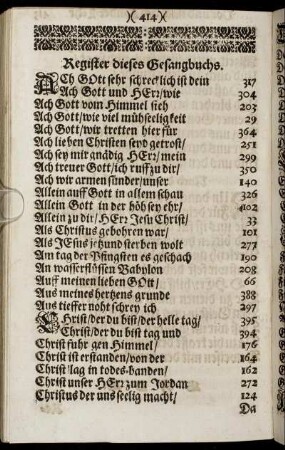 )(414)(
Register dieses Gesangbuchs.
ACH GOtt sehr schrecklich ist dein 317
Ach Gott und HErr/wie 304
Ach Gott vom Himmel sieh 203
Ach Gott/wie viel mühseeligkeit 29
Ach Gott/wir tretten hier für 364
Ach lieben Christen seyd getrost/ 251
Ach sey mir gnädig HErr/mein 299
Ach treuer Gott/ich ruff zu dir/ 350
Ach wir armen sünder/unser 140
Allein auff Gott in allem schau 326
Allein Gott in der höh sey ehr/ 402
Allein zu dir/HErr Jesu Christ/ 33
Als Christus gebohren war/ 101
Als JEsus jetzund sterben wolt 277
Am tag der Pfingsten es geschach 190
An wasserflüssen Babylon 208
Auff meinen lieben GOtt/ 66
Aus meines hertzens grunde 388
Aus tieffer noht schrey ich 297
Christ/der du bist/der helle tag/ 395
Christ/der du bist tag und 394
Christ fuhr gen Himmel/ 176
Christ ist erstanden/von der 164
Christ lag in todes-banden/ 162
Christ unser HErr zum Jordan 272
Christus der uns seelig macht/ 124
Da